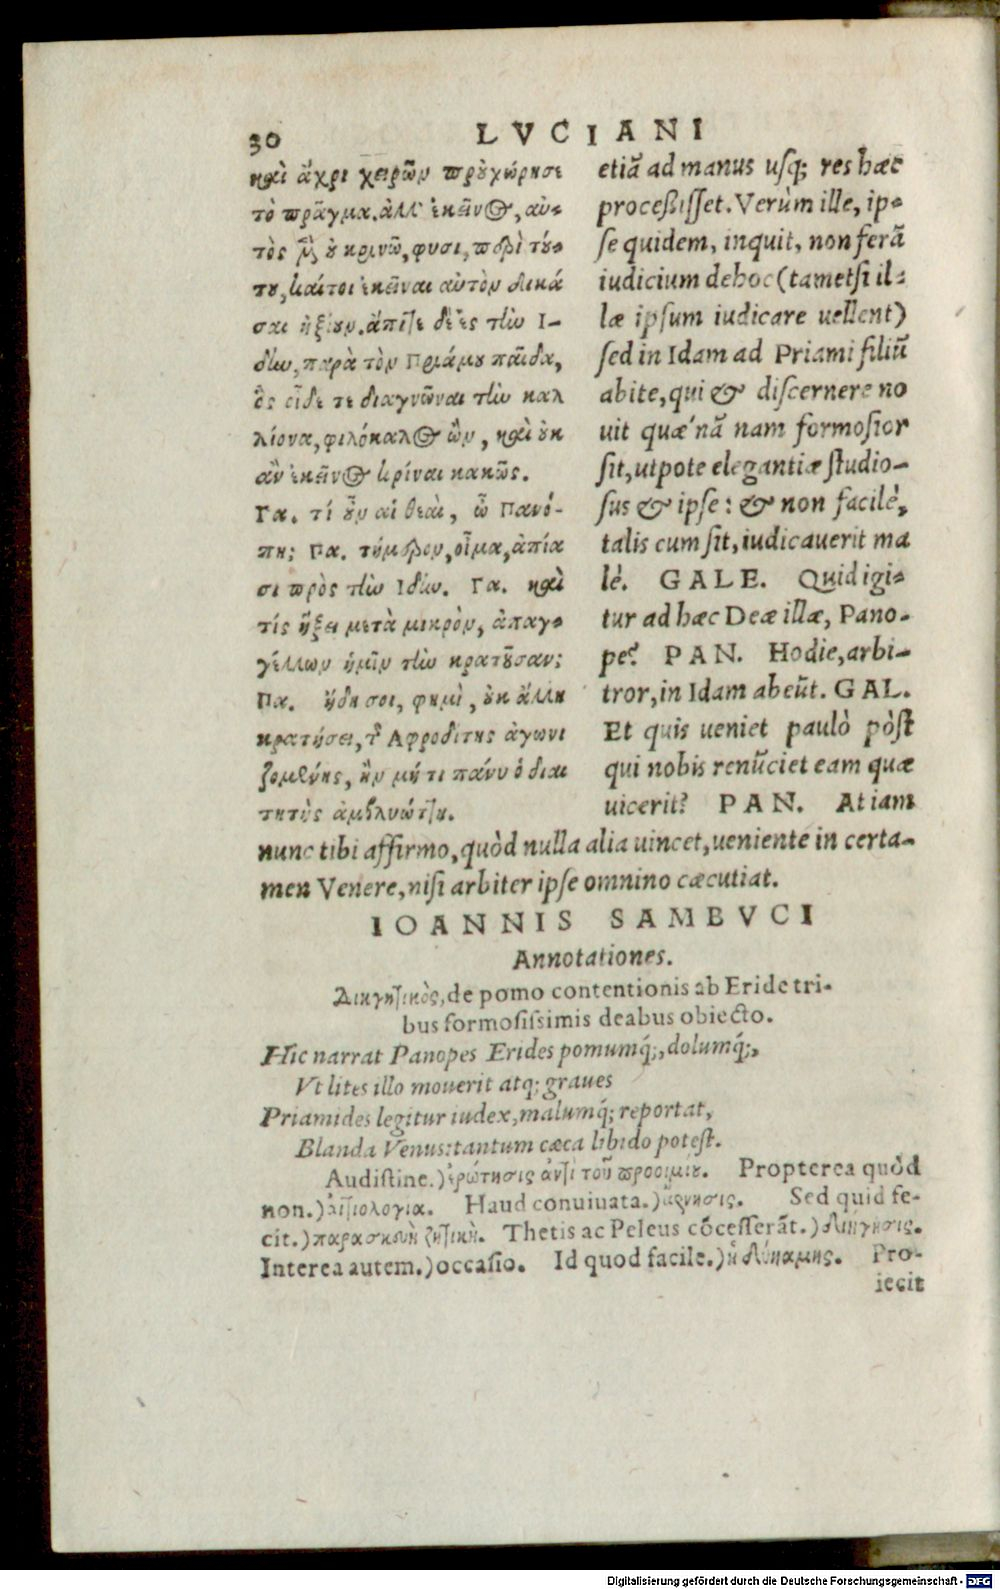 30
LVCIANI
καὶ ἄχρι χειρῶν προὐχώρησε
τὸ πρᾶγμα. ἀλλ' ἐκεῖνος, αὐ-
τὸς μὲν οὐ κρινῶ, φησι, περὶ τού-
του, καίτοι ἐκεῖναι αὐτὸν δικά
σαι ἠξίουν. ἄπιτε δὲ ἐς τὴν Ι-
δην, παρὰ τὸν Πριάμου παῖδα,
ὃς οἶδέ τε διαγνῶναι τὴν καλ
λίονα, φιλόκαλος ὢν, καὶ οὐκ
ἂν ἐκεῖνος κρίναι κακῶς.
Γα. τί οὖν αἱ θεαὶ, ὦ Πανό-
πη; Πα. τήμερον, οἶμαι, ἀπία
σι πρὸς τὴν Ιδην. Γα. καὶ
τίς ἥξει μετὰ μικρὸν, ἀπαγ-
γέλλων ἡμῖν τὴν κρατοῦσαν;
Πα. ἤδη σοι, φημὶ, οὐκ ἄλλη
κρατήσει, τῆς Αφροδίτης ἀγωνι
ζομένης, ἢν μή τι πάνυ ὁ διαι
τητὴς ἀμβλυώττῃ.
etiā ad manus usq; res hæc
processisset. Verùm ille, ip-
se quidem, inquit, non ferā
iudicium de hoc (tametsi il-
læ ipsum iudicare uellent)
sed in Idam ad Priami filiū
abite, qui & discernere no
uit quæ'nā nam formosior
sit, utpote elegantiæ studio-
sus & ipse: & non facilè,
talis cum sit, iudicauerit ma
lè. GALE. Quid igi-
tur ad hæc Deæ illæ, Pano-
pe? PAN. Hodie, arbi-
tror, in Idam abeūt. GAL.
Et quis ueniet paulò pòst
qui nobis renūciet eam quæ
uicerit? PAN. At iam
nunc tibi affirmo, quòd nulla alia uincet, ueniente in certa-
men Venere, nisi arbiter ipse omnino cæcutiat.
IOANNIS SAMBVCI
Annotationes.
Διηγητικὸς, de pomo contentionis ab Eride tri-
bus formosissimis deabus obiecto.
Hic narrat Panopes Erides pomumq́;, dolumq́;,
Vt lites illo mouerit atq; graues
Priamides legitur iudex, malumq́; reportat,
Blanda Venus: tantum cæca libido potest.
Audistine.) ἐρώτησις ἀντὶ τοῦ προοιμίου. Propterea quòd
non.) αἰτιολογία. Haud conuiuata.) ἄρνησις. Sed quid fe-
cit.) παρασκευὴ ζητικὴ. Thetis ac Peleus cōcesserāt.) διήγησις.
Interea autem.) occasio. Id quod facile.) ἡ δύναμης. Pro-
iecit
Digitalisierung gefördert durch die Deutsche Forschungsgemeinschaft - DFG